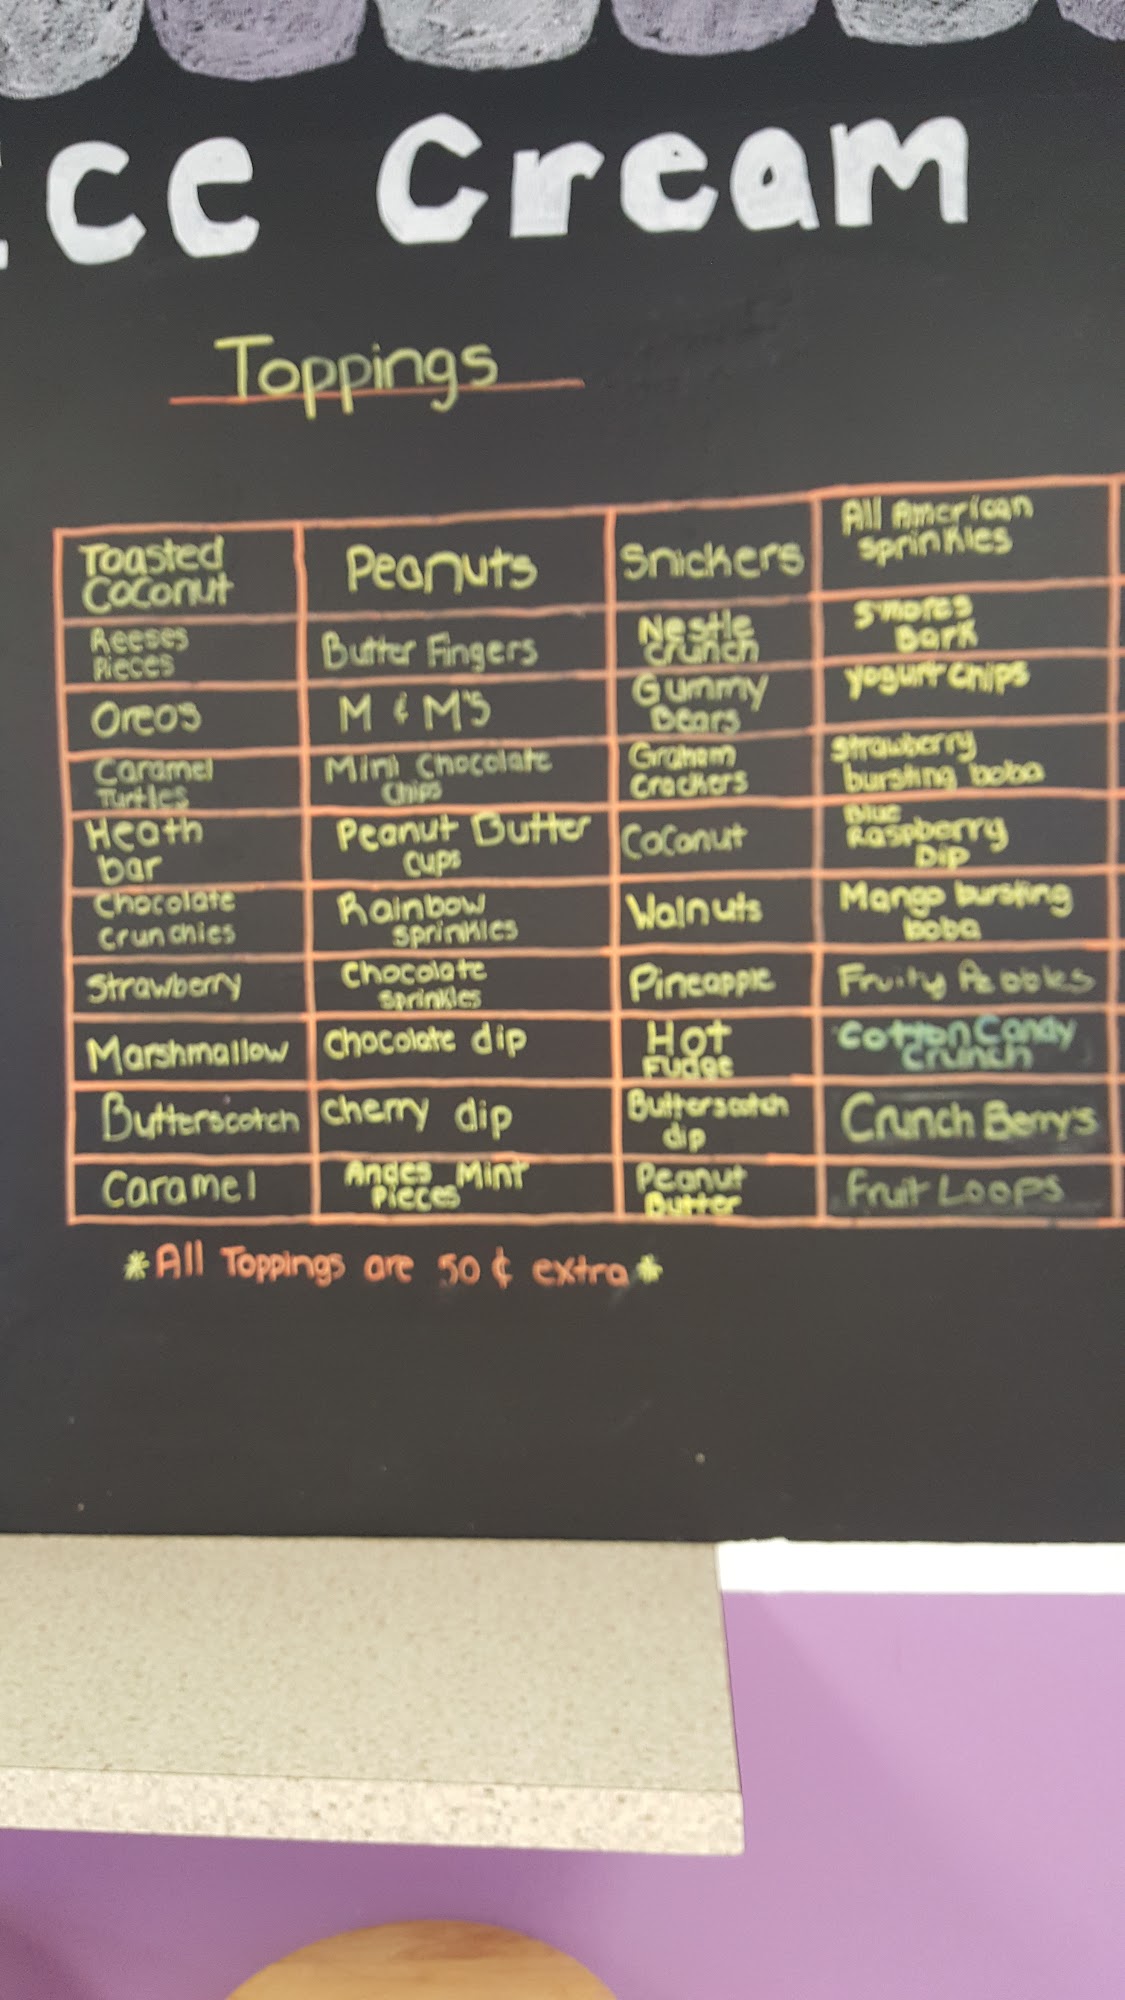 Ice Cream
Toppings
Toasted
Coconut
Peanuts
Snickers
All American
Sprinkles
Reeses
Pieces
Butter Fingers
Nestle
Crunch
S'mores
Bark
Oreos
M & M'S
Gummy
Bears
Yogurt Chips
Caramel
Turtles
Mini Chocolate
Chips
Graham
Crackers
Strawberry
bursting boba
Heath
bar
Peanut Butter
Cups
Coconut
Blue
Raspberry
Dip
Chocolate
Crunchies
Rainbow
Sprinkles
Walnuts
Mango bursting
boba
Strawberry
Chocolate
Sprinkles
Pineapple
Fruity Pebbles
Marshmallow
Chocolate dip
Hot
Fudge
Cotton Candy
Crunch
Butterscotch
Cherry dip
Butterscotch
dip
Crunch Berry's
Caramel
Andes Mint
Pieces
Peanut
Butter
Fruit Loops
*All Toppings are 50¢ extra*